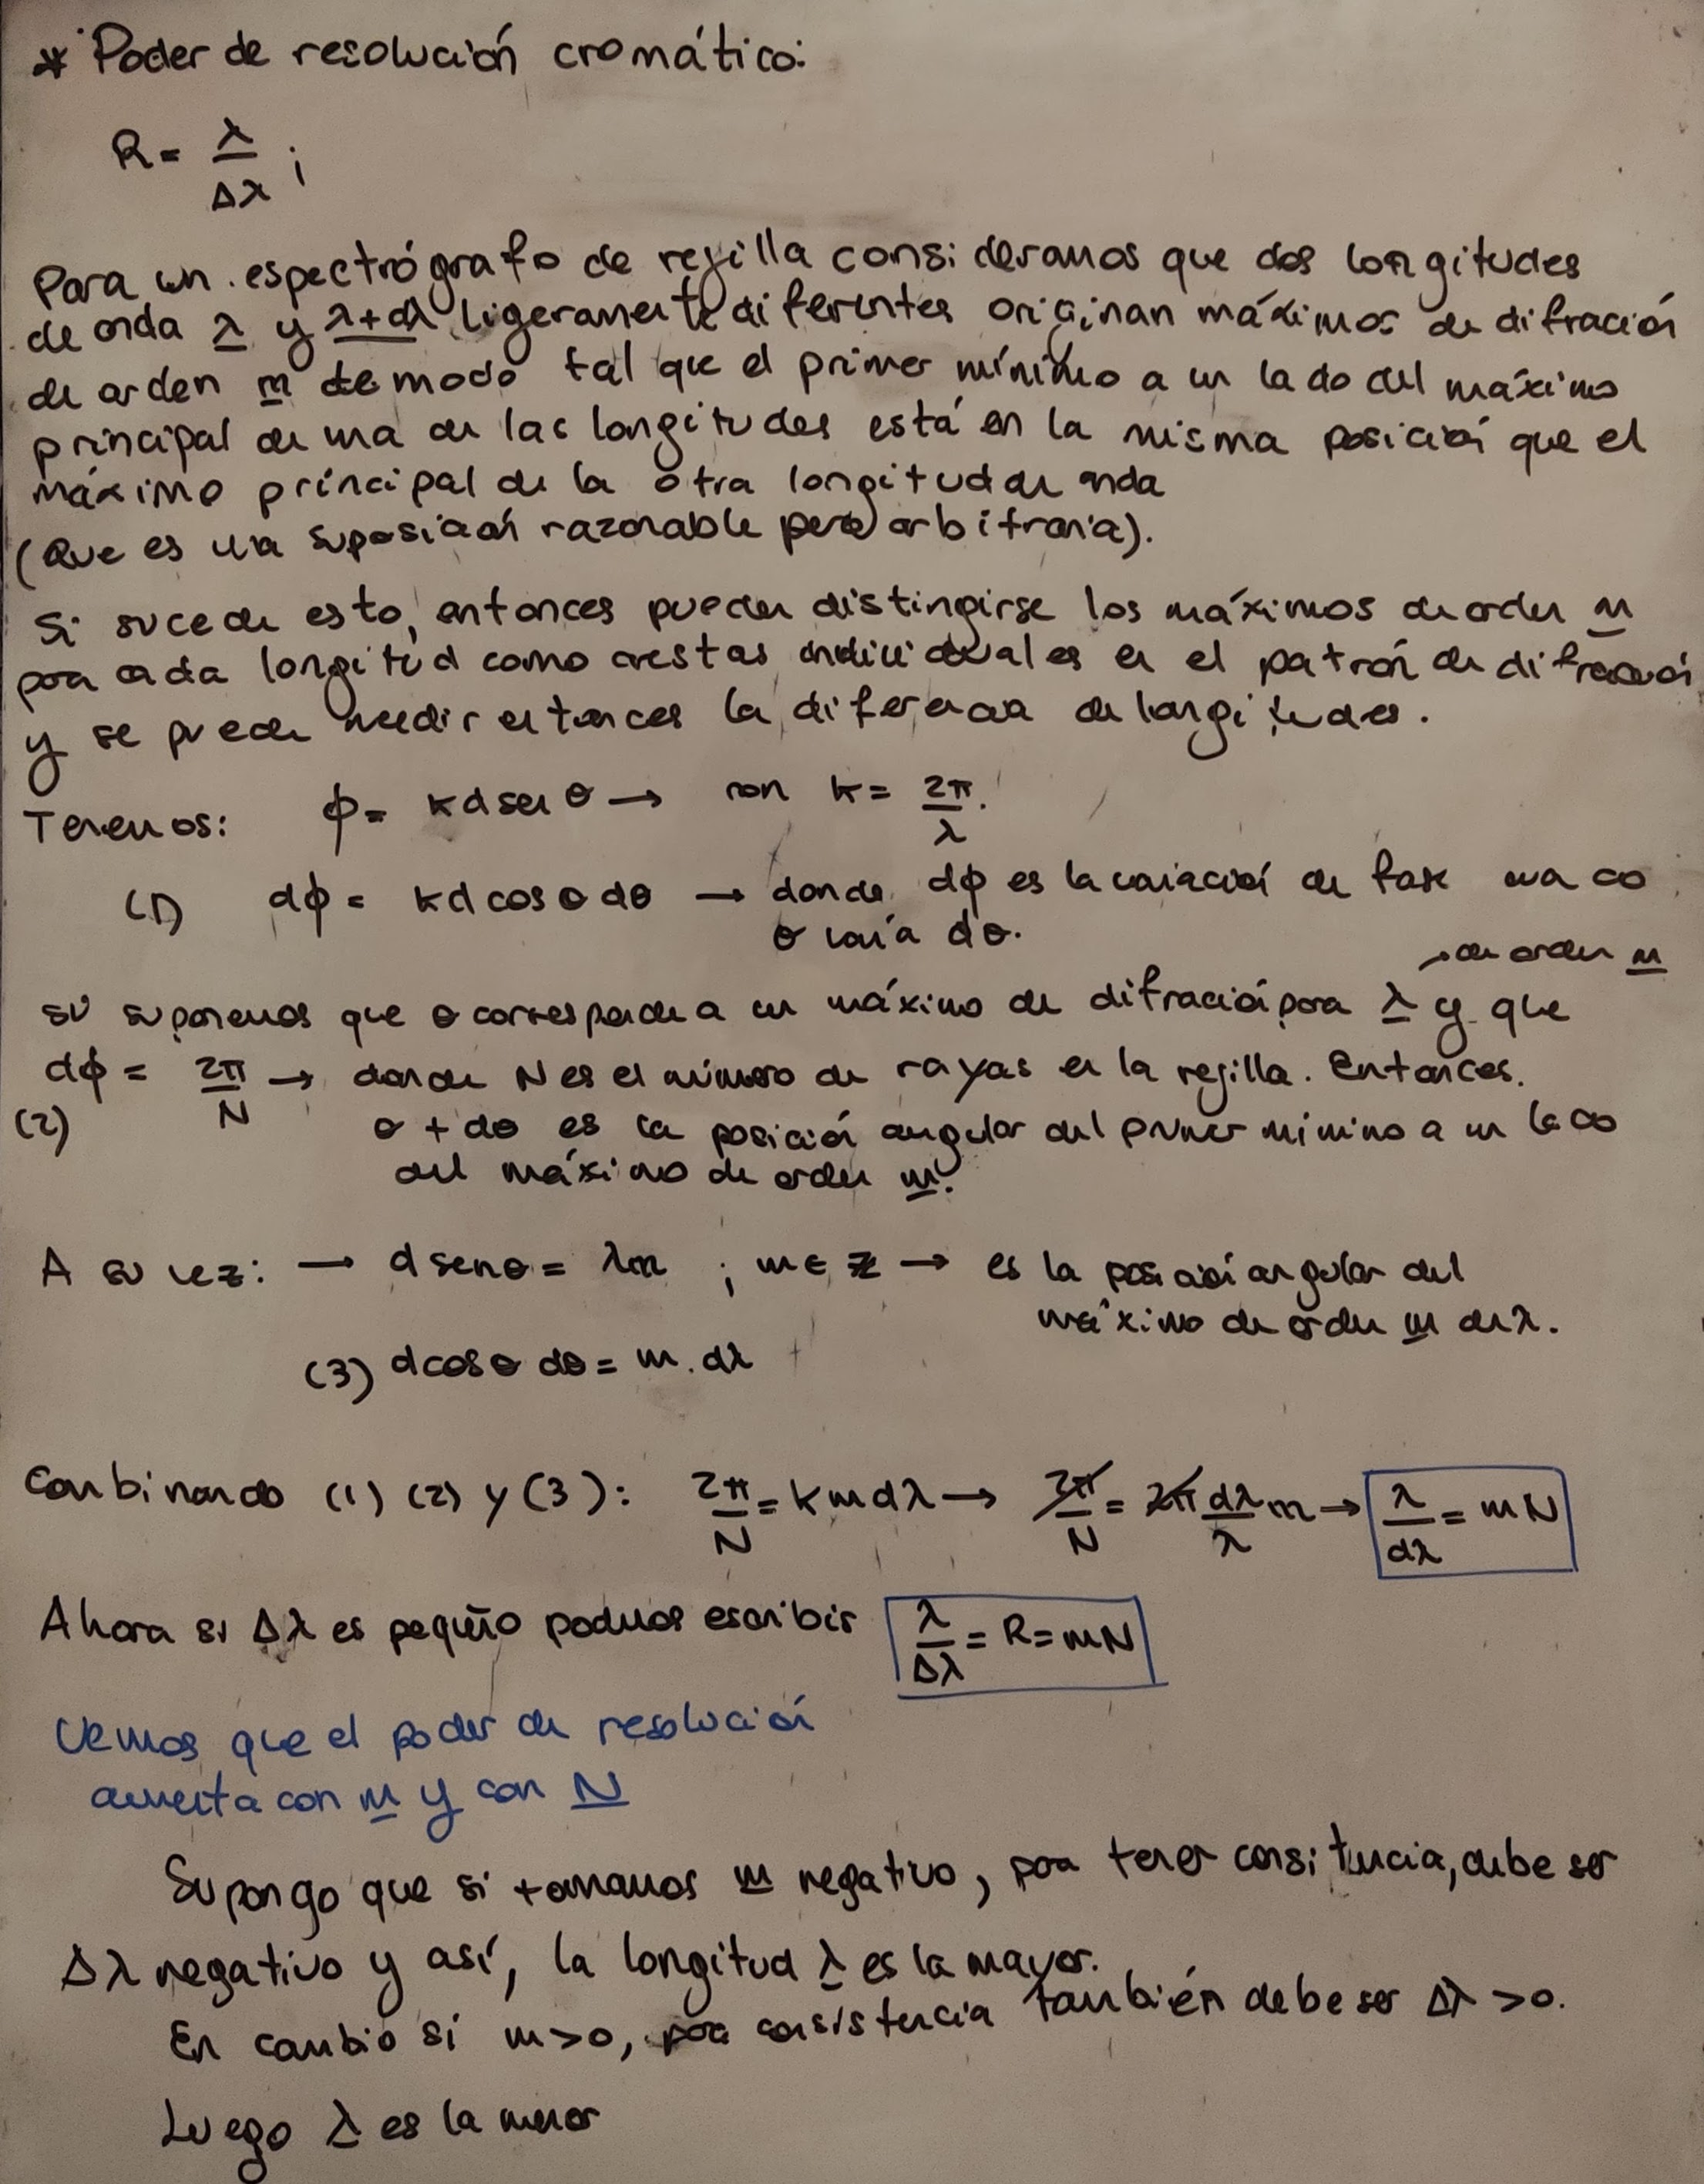 * Poder de resolución cromático:
R = λ/Δλ ;
Para un espectrógrafo de rejilla consideramos que dos longitudes
de onda λ y λ+dλ ligeramente diferentes originan máximos de difración
de orden m de modo tal que el primer mínimo a un lado del máximo
principal de una de las longitudes está en la misma posición que el
máximo principal de la otra longitud de onda
(Que es una suposición razonable pero arbitraria).
Si sucede esto, entonces pueden distingirse los máximos de orden m
para cada longitud como crestas individuales en el patrón de difracción
y se puede medir entonces la diferencia de longitudes.
Tenemos: ϕ = kd sen θ → con k = 2π/λ.
(1) dϕ = kd cos θ dθ → donde dϕ es la variación de fase cuando
θ varía dθ.
→ de orden m
si suponemos que θ corresponde a un máximo de difración para λ y que
dϕ = 2π/N → donde N es el número de rayas en la rejilla. Entonces.
(2) θ + dθ es la posición angular del primer mínimo a un lado
del máximo de orden m.
A su vez: → d senθ = λm ; m ∈ ℤ → es la posición angular del
máximo de orden m de λ.
(3) d cos θ dθ = m. dλ
Combinando (1) (2) y (3): 2π/N = k m dλ → 2π/N = 2π dλ/λ m → λ/dλ = mN
Ahora si Δλ es pequeño podemos escribir λ/Δλ = R = mN
Vemos que el poder de resolución
aumenta con m y con N
Supongo que si tomamos m negativo, para tener consitencia, debe ser
Δλ negativo y así, la longitud λ es la mayor.
En cambio si m>0, para consistencia también debe ser Δλ >0.
Luego λ es la menor